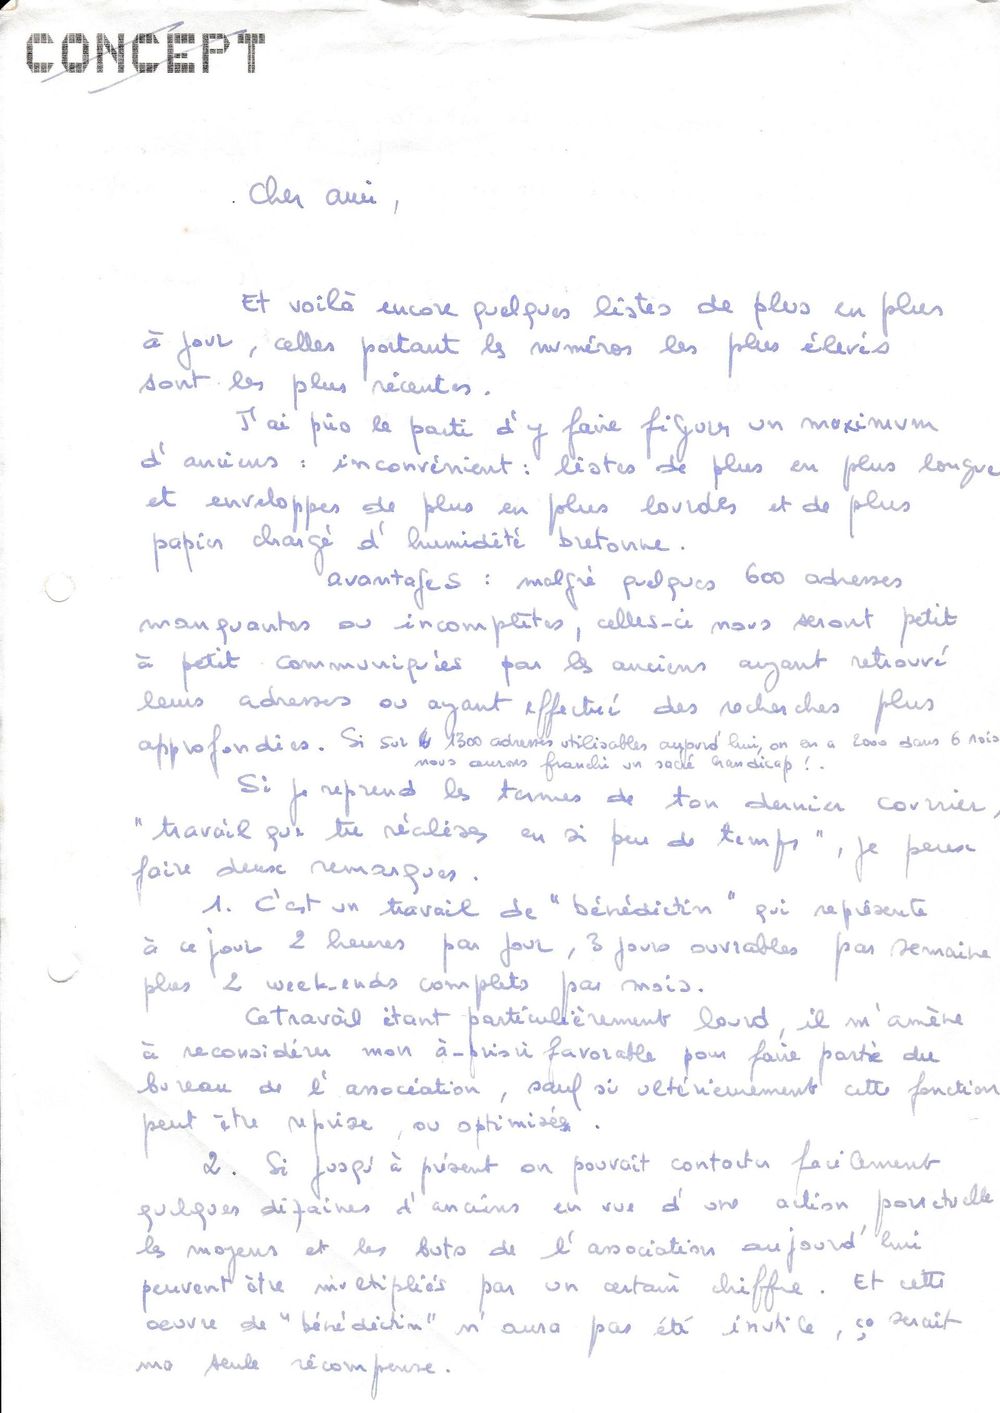 CONCEPT
Cher ami,
Et voilà encore quelques listes de plus en plus
à jour, celles portant les numéros les plus élevés
sont les plus récentes.
J'ai pris le parti d'y faire figurer un maximum
d'anciens : inconvénient : listes de plus en plus longues
et enveloppes de plus en plus lourdes et de plus
papier chargé d'humidité bretonne.
avantages : malgré quelques 600 adresses
manquantes ou incomplètes, celles-ci nous seront petit
à petit communiquées par les anciens ayant retrouvé
leurs adresses ou ayant effectué des recherches plus
approfondies. Si sur 1300 adresses utilisables aujourd'hui, on en a 2000 dans 6 mois
nous aurons franchi un sacré handicap !.
Si je reprend les termes de ton dernier courrier,
"travail que tu réalises en si peu de temps", je peux
faire deux remarques.
1. C'est un travail de "bénédictin" qui représente
à ce jour 2 heures par jour, 3 jours ouvrables par semaine
plus 2 week-ends complets par mois.
Ce travail étant particulièrement lourd, il m'amène
à reconsidérer mon à-priori favorable pour faire partie du
bureau de l'association, sauf si ultérieurement cette fonction
peut être reprise, ou optimisée.
2. Si jusqu'à présent on pouvait contacter facilement
quelques dizaines d'anciens en vue d'une action ponctuelle
les moyens et les buts de l'association aujourd'hui
peuvent être multipliés par un certain chiffre. Et cette
oeuvre de "bénédictin" n'aura pas été inutile, ça serait
ma seule récompense.